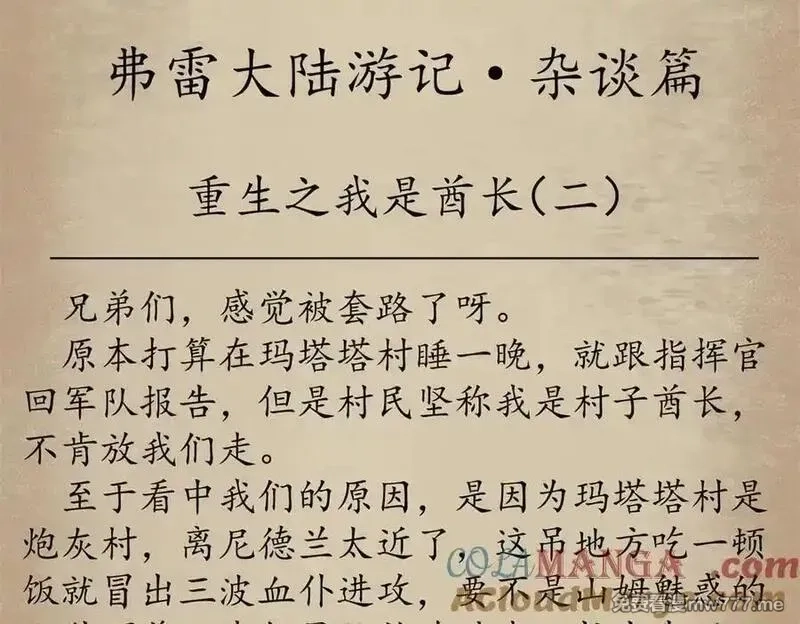 弗雷大陆游记·杂谈篇
重生之我是酋长(二)
兄弟们，感觉被套路了呀。
原本打算在玛塔塔村睡一晚，就跟指挥官
回军队报告，但是村民坚称我是村子酋长，
不肯放我们走。
至于看中我们的原因，是因为玛塔塔村是
炮灰村，离尼德兰太近了，这吊地方吃一顿
饭就冒出三波血仆进攻，要不是山姆魅惑的
COLAMANGA.com
AcloudMerge.com
免费看漫mw777.me